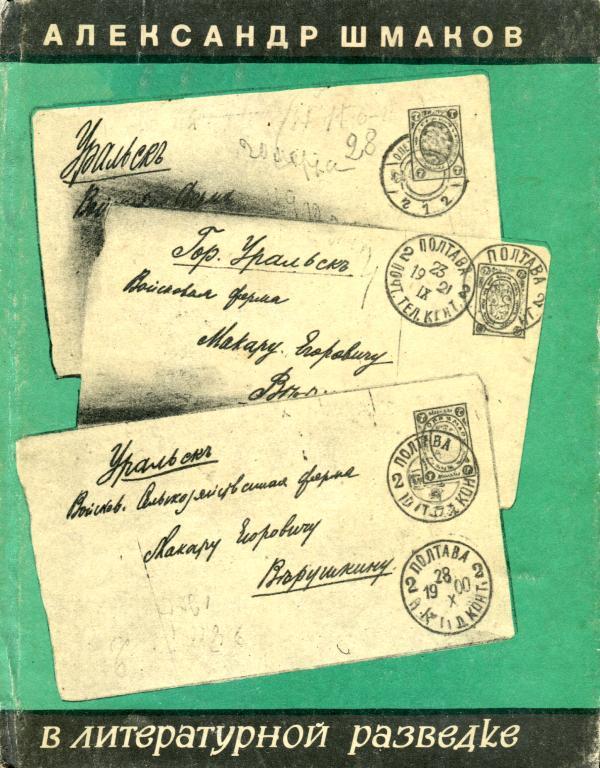 АЛЕКСАНДР ШМАКОВ
Уральскъ
28
212
Гор. Уральскъ
Войсковая ферма
Макару Егоровичу
ПОЛТАВА
19 23
IX 21
ПОЛТАВА
Уральскъ
Войсков. Сельскохозяйственная ферма
Макару Егоровичу
Вѣрушкину
ПОЛТАВА
2
ПОЛТАВА
2 2
28
19 00
X
в литературной разведке